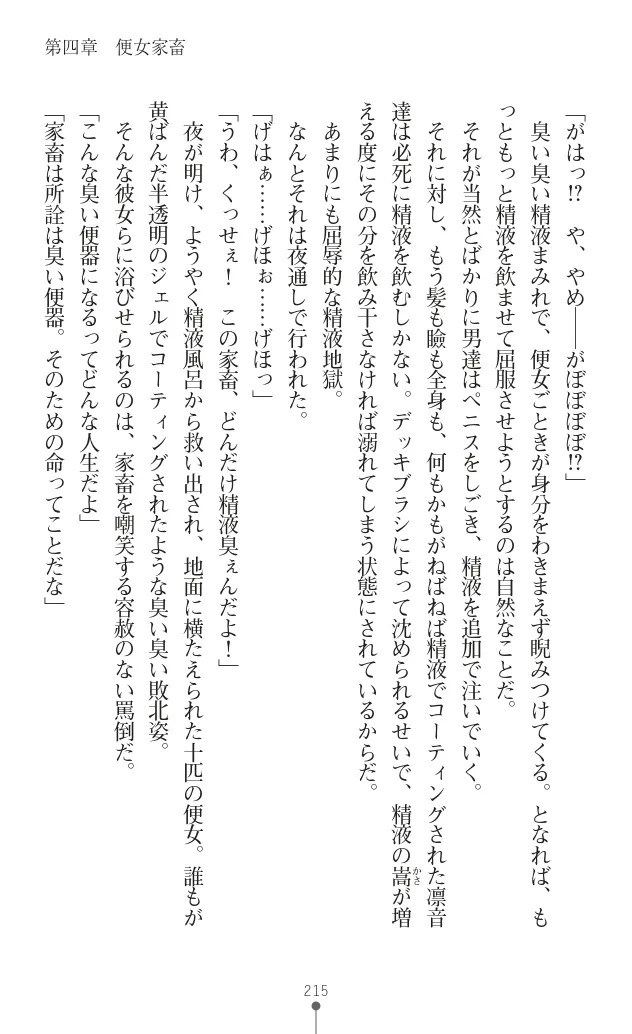 第四章　便女家畜
「がはっ!?　や、やめ――がぼぼぼぼ!?」
　臭い臭い精液まみれで、便女ごときが身分をわきまえず睨みつけてくる。となれば、も
っともっと精液を飲ませて屈服させようとするのは自然なことだ。
　それが当然とばかりに男達はペニスをしごき、精液を追加で注いでいく。
　それに対し、もう髪も瞼も全身も、何もかもがねばねば精液でコーティングされた凛音
達は必死に精液を飲むしかない。デッキブラシによって沈められるせいで、精液の嵩が増
かさ
える度にその分を飲み干さなければ溺れてしまう状態にされているからだ。
　あまりにも屈辱的な精液地獄。
　なんとそれは夜通しで行われた。
「げはぁ……げほぉ……げほっ」
「うわ、くっせぇ！　この家畜、どんだけ精液臭ぇんだよ！」
　夜が明け、ようやく精液風呂から救い出され、地面に横たえられた十匹の便女。誰もが
黄ばんだ半透明のジェルでコーティングされたような臭い臭い敗北姿。
　そんな彼女らに浴びせられるのは、家畜を嘲笑する容赦のない罵倒だ。
「こんな臭い便器になるってどんな人生だよ」
「家畜は所詮は臭い便器。そのための命ってことだな」
215